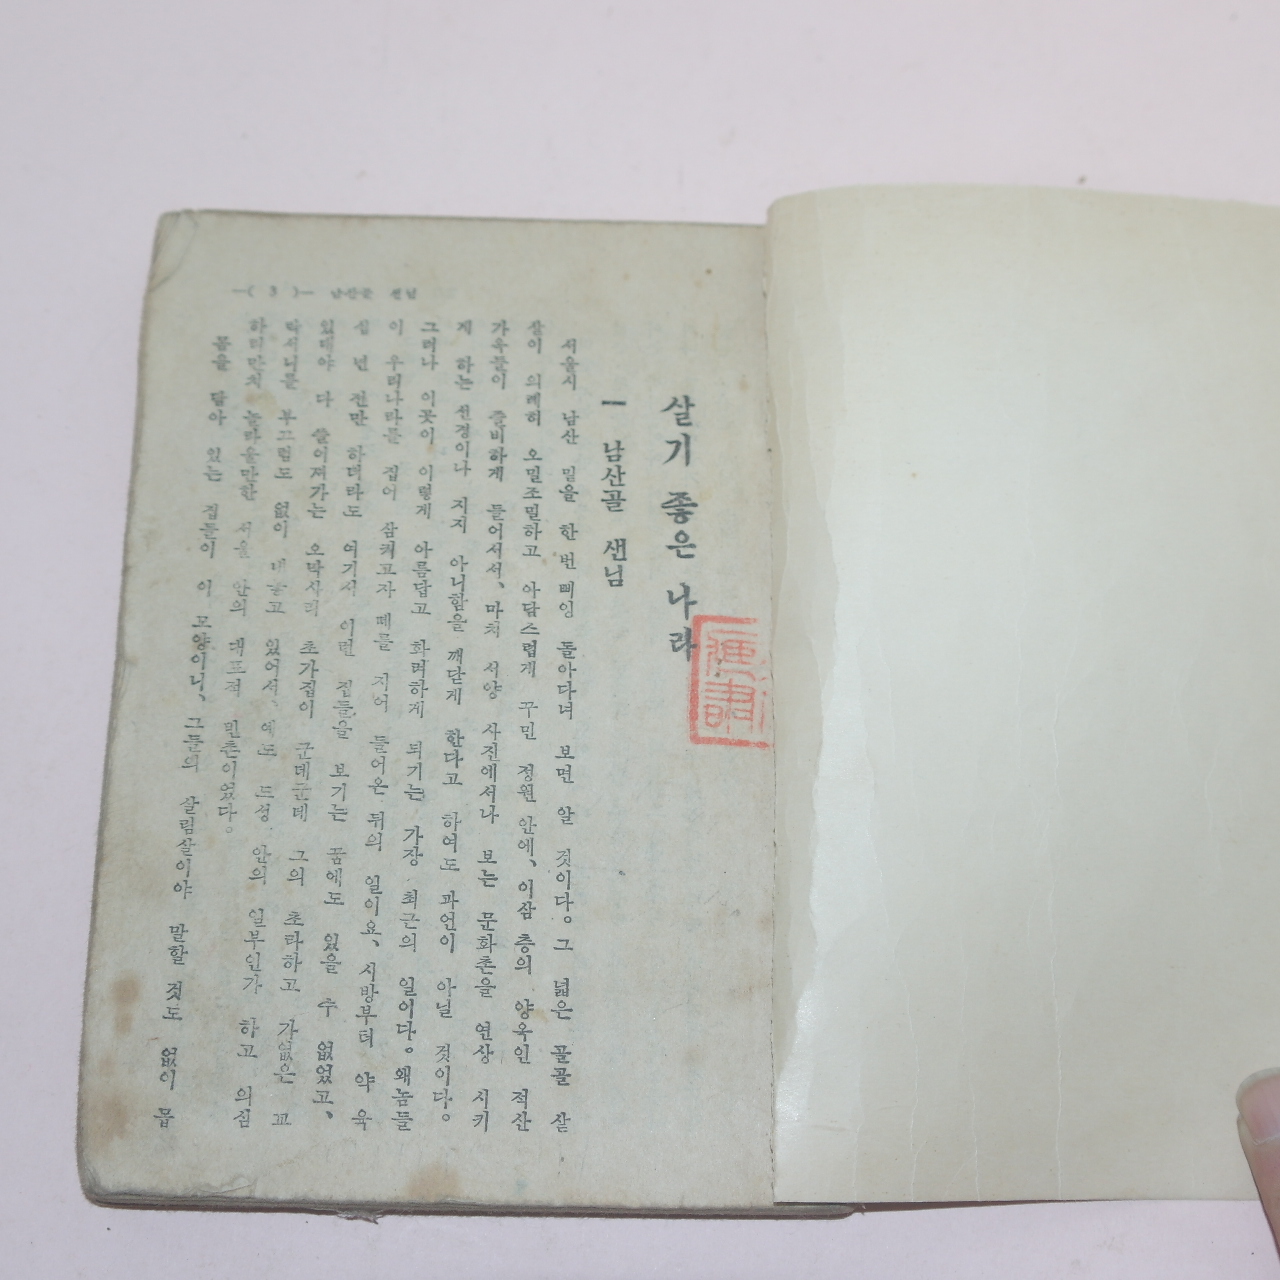 —( 3 )— 남산골 샌님
살기 좋은 나라
一 남산골 샌님
서울시 남산 밑을 한 번 삐잉 돌아다녀 보면 알 것이다。그 넓은 골골 샅
샅이 의례히 오밀조밀하고 아담스럽게 꾸민 정원 안에、이삼 층의 양옥인 적산
가옥들이 즐비하게 들어서서、마치 서양 사진에서나 보는 문화촌을 연상 시키
게 하는 선경이나 지지 아니함을 깨닫게 한다고 하여도 과언이 아닐 것이다。
그러나 이곳이 이렇게 아름답고 화려하게 되기는 가장 최근의 일이다。왜놈들
이 우리나라를 집어 삼켜고자 떼를 지어 들어온 뒤의 일이요、시방부터 약 육
십 년 전만 하더라도 여기서 이런 집들을 보기는 꿈에도 있을 수 없었고、
있대야 다 쓸어져가는 오막사리 초가집이 군데군데 그의 초라하고 가없은 꼬
락서니를 부끄럼도 없이 내놓고 있어서、예도 도성 안의 일부인가 하고 의심
하리만치 놀라울만한 서울 안의 대표적 빈촌이었다。
몸을 담아 있는 집들이 이 모양이니、그들의 살림살이야 말할 것도 없이 믑